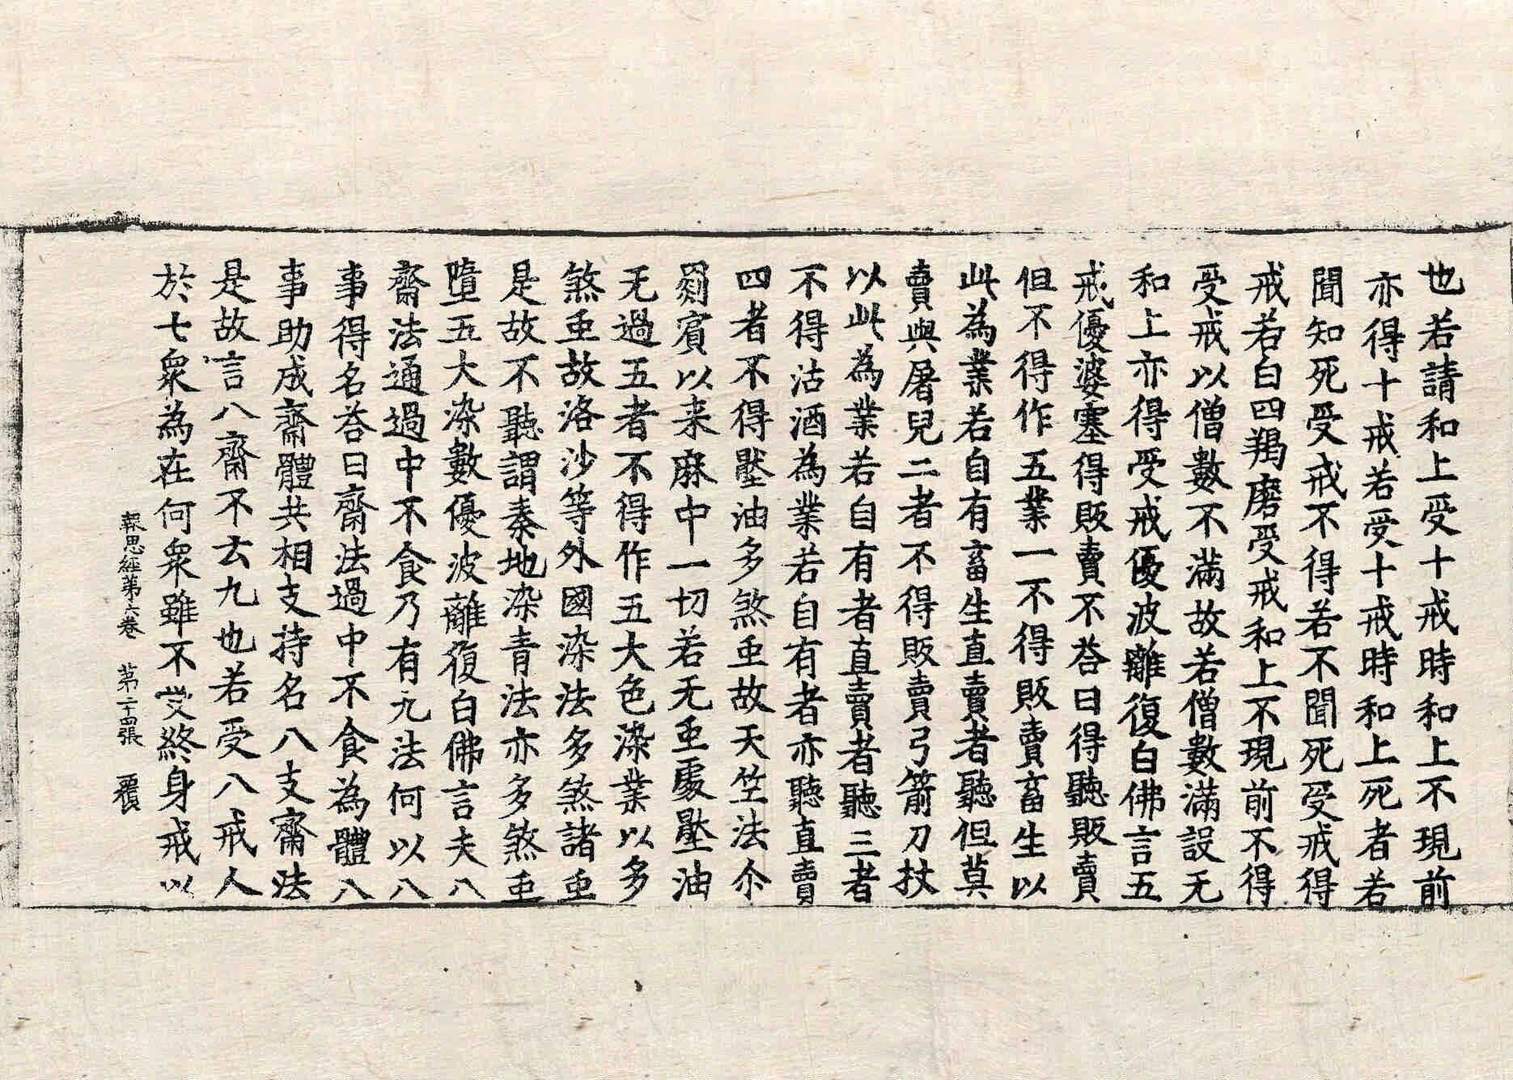 也若請和上受十戒時和上不現前
亦得十戒若受十戒時和上死者若
聞知死受戒不得若不聞死受戒得
戒若白四羯磨受戒和上不現前不得
受戒以僧數不滿故若僧數滿設无
和上亦得受戒優波離復白佛言五
戒優婆塞得販賣不荅曰得聽販賣
但不得作五業一不得販賣畜生以
此為業若自有畜生直賣者聽但莫
賣與屠兒二者不得販賣弓箭刀杖
以此為業若自有者直賣者聽三者
不得沽酒為業若自有者亦聽直賣
四者不得壓油多煞虫故天竺法尒
罽賓以来麻中一切若无虫處壓油
无過五者不得作五大色染業以多
煞虫故洛沙等外國染法多煞諸虫
是故不聽謂秦地染青法亦多煞虫
墮五大染數優波離復白佛言夫八
齋法通過中不食乃有九法何以八
事得名荅曰齋法過中不食為體八
事助成齋體共相支持名八支齋法
是故言八齋不云九也若受八戒人
於七衆為在何衆雖不受終身戒以
報恩經第六卷 第二十四張 覆